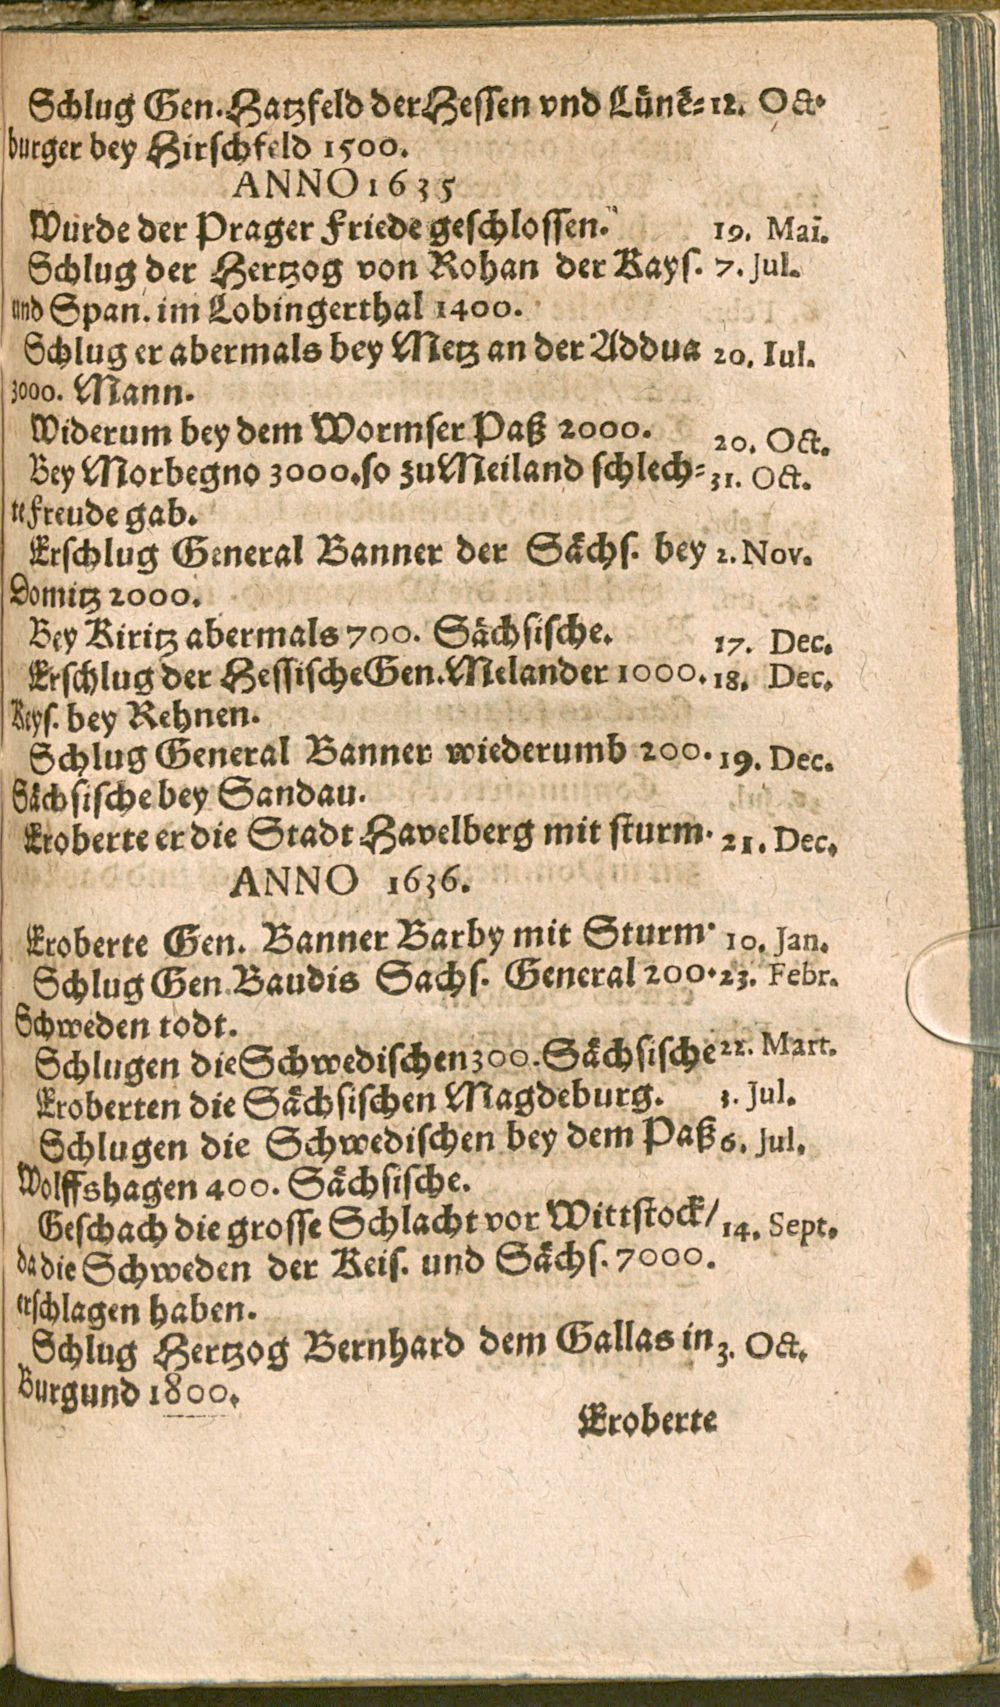 Schlug Gen. Hatzfeld der Hessen vnd Lünē= 12. Oct.
burger bey Hirschfeld 1500.
ANNO 1635
Wurde der Prager Friede geschlossen. 19. Mai.
Schlug der Hertzog von Rohan der Kays. 7. Jul.
und Span. im Lobingerthal 1400.
Schlug er abermals bey Metz an der Addua 20. Iul.
3000. Mann.
Widerum bey dem Wormser Paß 2000. 20. Oct.
Bey Morbegno 3000. so zu Meiland schlech= 31. Oct.
te freude gab.
Erschlug General Banner der Sächs. bey 2. Nov.
Domitz 2000.
Bey Kiritz abermals 700. Sächsische. 17. Dec.
Erschlug der Hessische Gen. Melander 1000. 18. Dec.
Keys. bey Rehnen.
Schlug General Banner wiederumb 200. 19. Dec.
Sächsische bey Sandau.
Eroberte er die Stadt Havelberg mit sturm. 21. Dec.
ANNO 1636.
Eroberte Gen. Banner Barby mit Sturm. 10. Jan.
Schlug Gen. Baudis Sachs. General 200. 23. Febr.
Schweden todt.
Schlugen die Schwedischen 300. Sächsische 22. Mart.
Eroberten die Sächsischen Magdeburg. 3. Jul.
Schlugen die Schwedischen bey dem Paß 6. Jul.
Wolffshagen 400. Sächsische.
Geschach die grosse Schlacht vor Wittstock/ 14. Sept.
da die Schweden der Keis. und Sächs. 7000.
erschlagen haben.
Schlug Hertzog Bernhard dem Gallas in 3. Oct.
Burgund 1800.
Eroberte